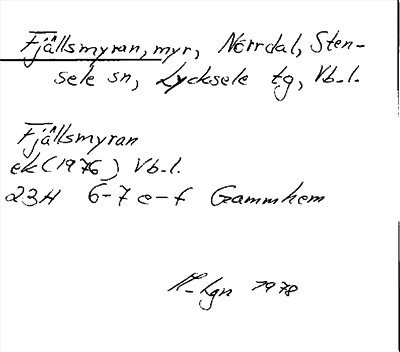 Fjällsmyran, myr, Norrdal, Sten-
sele sn, Lycksele tg, Vb.l.
Fjällsmyran
ek (1976) Vb.l.
23H 6-7 e-f Gammhem
1978